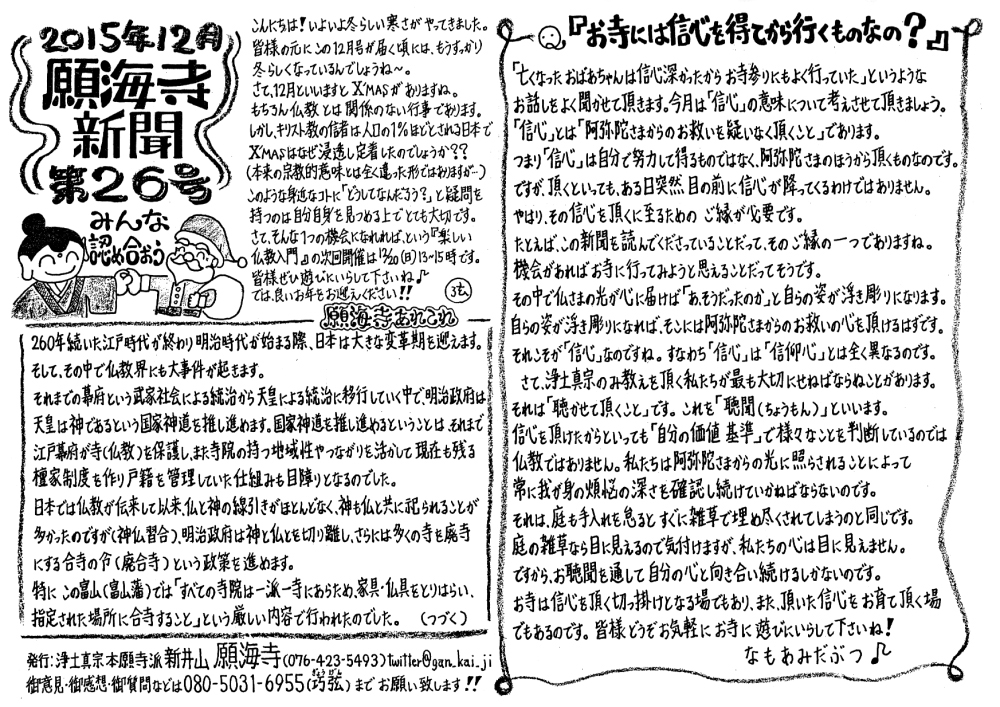 2015年12月
願海寺
新聞
第26号
みんな
認め合おう
こんにちは!いよいよ冬らしい寒さがやってきました。
皆様の元にこの12月号が届く頃には、もうすっかり
冬らしくなっているんでしょうね〜。
さて、12月といいますとX'MASがありますね。
もちろん仏教とは関係のない行事であります。
しかし、キリスト教の信者は人口の1%ほどとされる日本で
X'MASはなぜ浸透し定着したのでしょうか??
(本来の宗教的意味とは全く違った形ではありますが…)
このような身近なコトに「どうしてなんだろう?」と疑問を
持つのは自分自身を見つめる上でとても大切です。
さて、そんな1つの機会になれれば、という『楽しい
仏教入門』の次回開催は12/20(日)13〜15時です。
皆様ぜひ遊びにいらして下さいね♪
では、良いお年をお迎えください!!
弦
願海寺あれこれ
260年続いた江戸時代が終わり明治時代が始まる際、日本は大きな変革期を迎えます。
そして、その中で仏教界にも大事件が起きます。
それまでの幕府という武家社会による統治から天皇による統治に移行していく中で、明治政府は
天皇は神であるという国家神道を推し進めます。国家神道を推し進めるということは、それまで
江戸幕府が寺(仏教)を保護し、また寺院の持つ地域性やつながりを活かして現在も残る
檀家制度を作り戸籍を管理していた仕組みも目障りとなるのでした。
日本では仏教が伝来して以来、仏と神の線引きがほとんどなく、神も仏と共に祀られることが
多かったのですが(神仏習合)、明治政府は神と仏とを切り離し、さらには多くの寺を廃寺
にする合寺の令(廃合寺)という政策を進めます。
特にこの富山(富山藩)では「すべての寺院は一派一寺にあらため、家具・仏具をとりはらい、
指定された場所に合寺すること」という厳しい内容で行われたのでした。 (つづく)
発行:浄土真宗本願寺派 新井山 願海寺(076-423-5493)twitter@gan_kai_ji
御意見・御感想・御質問などは080-5031-6955(巧弦)までお願い致します!!
Q.『お寺には信心を得てから行くものなの?』
「亡くなったおばあちゃんは信心深かったからお寺参りにもよく行っていた」というような
お話をよく聞かせて頂きます。今月は「信心」の意味について考えさせて頂きましょう。
「信心」とは「阿弥陀さまからのお救いを疑いなく頂くこと」であります。
つまり「信心」は自分で努力して得るものではなく、阿弥陀さまのほうから頂くものなのです。
ですが、頂くといっても、ある日突然、目の前に信心が降ってくるわけではありません。
やはり、その信心を頂くに至るための ご縁が必要です。
たとえば、この新聞を読んでくださっていることだって、そのご縁の一つでありますね。
機会があればお寺に行ってみようと思えることだってそうです。
その中で仏さまの光が心に届けば「あ、そうだったのか」と自らの姿が浮き彫りになります。
自らの姿が浮き彫りになれば、そこには阿弥陀さまからのお救いの心を頂けるはずです。
それこそが「信心」なのですね。すなわち「信心」は「信仰心」とは全く異なるのです。
さて、浄土真宗のみ教えを頂く私たちが最も大切にせねばならぬことがあります。
それは「聴かせて頂くこと」です。これを「聴聞(ちょうもん)」といいます。
信心を頂けたからといっても「自分の価値基準」で様々なことを判断しているのでは
仏教ではありません。私たちは阿弥陀さまからの光に照らされることによって
常に我が身の煩悩の深さを確認し続けていかねばならないのです。
それは、庭も手入れを怠るとすぐに雑草で埋め尽くされてしまうのと同じです。
庭の雑草なら目に見えるので気付けますが、私たちの心は目に見えません。
ですから、お聴聞を通して自分の心と向き合い続けるしかないのです。
お寺は信心を頂く切っ掛けとなる場でもあり、また、頂いた信心をお育て頂く場
でもあるのです。皆様どうぞお気軽にお寺に遊びにいらして下さいね!
なもあみだぶつ♪